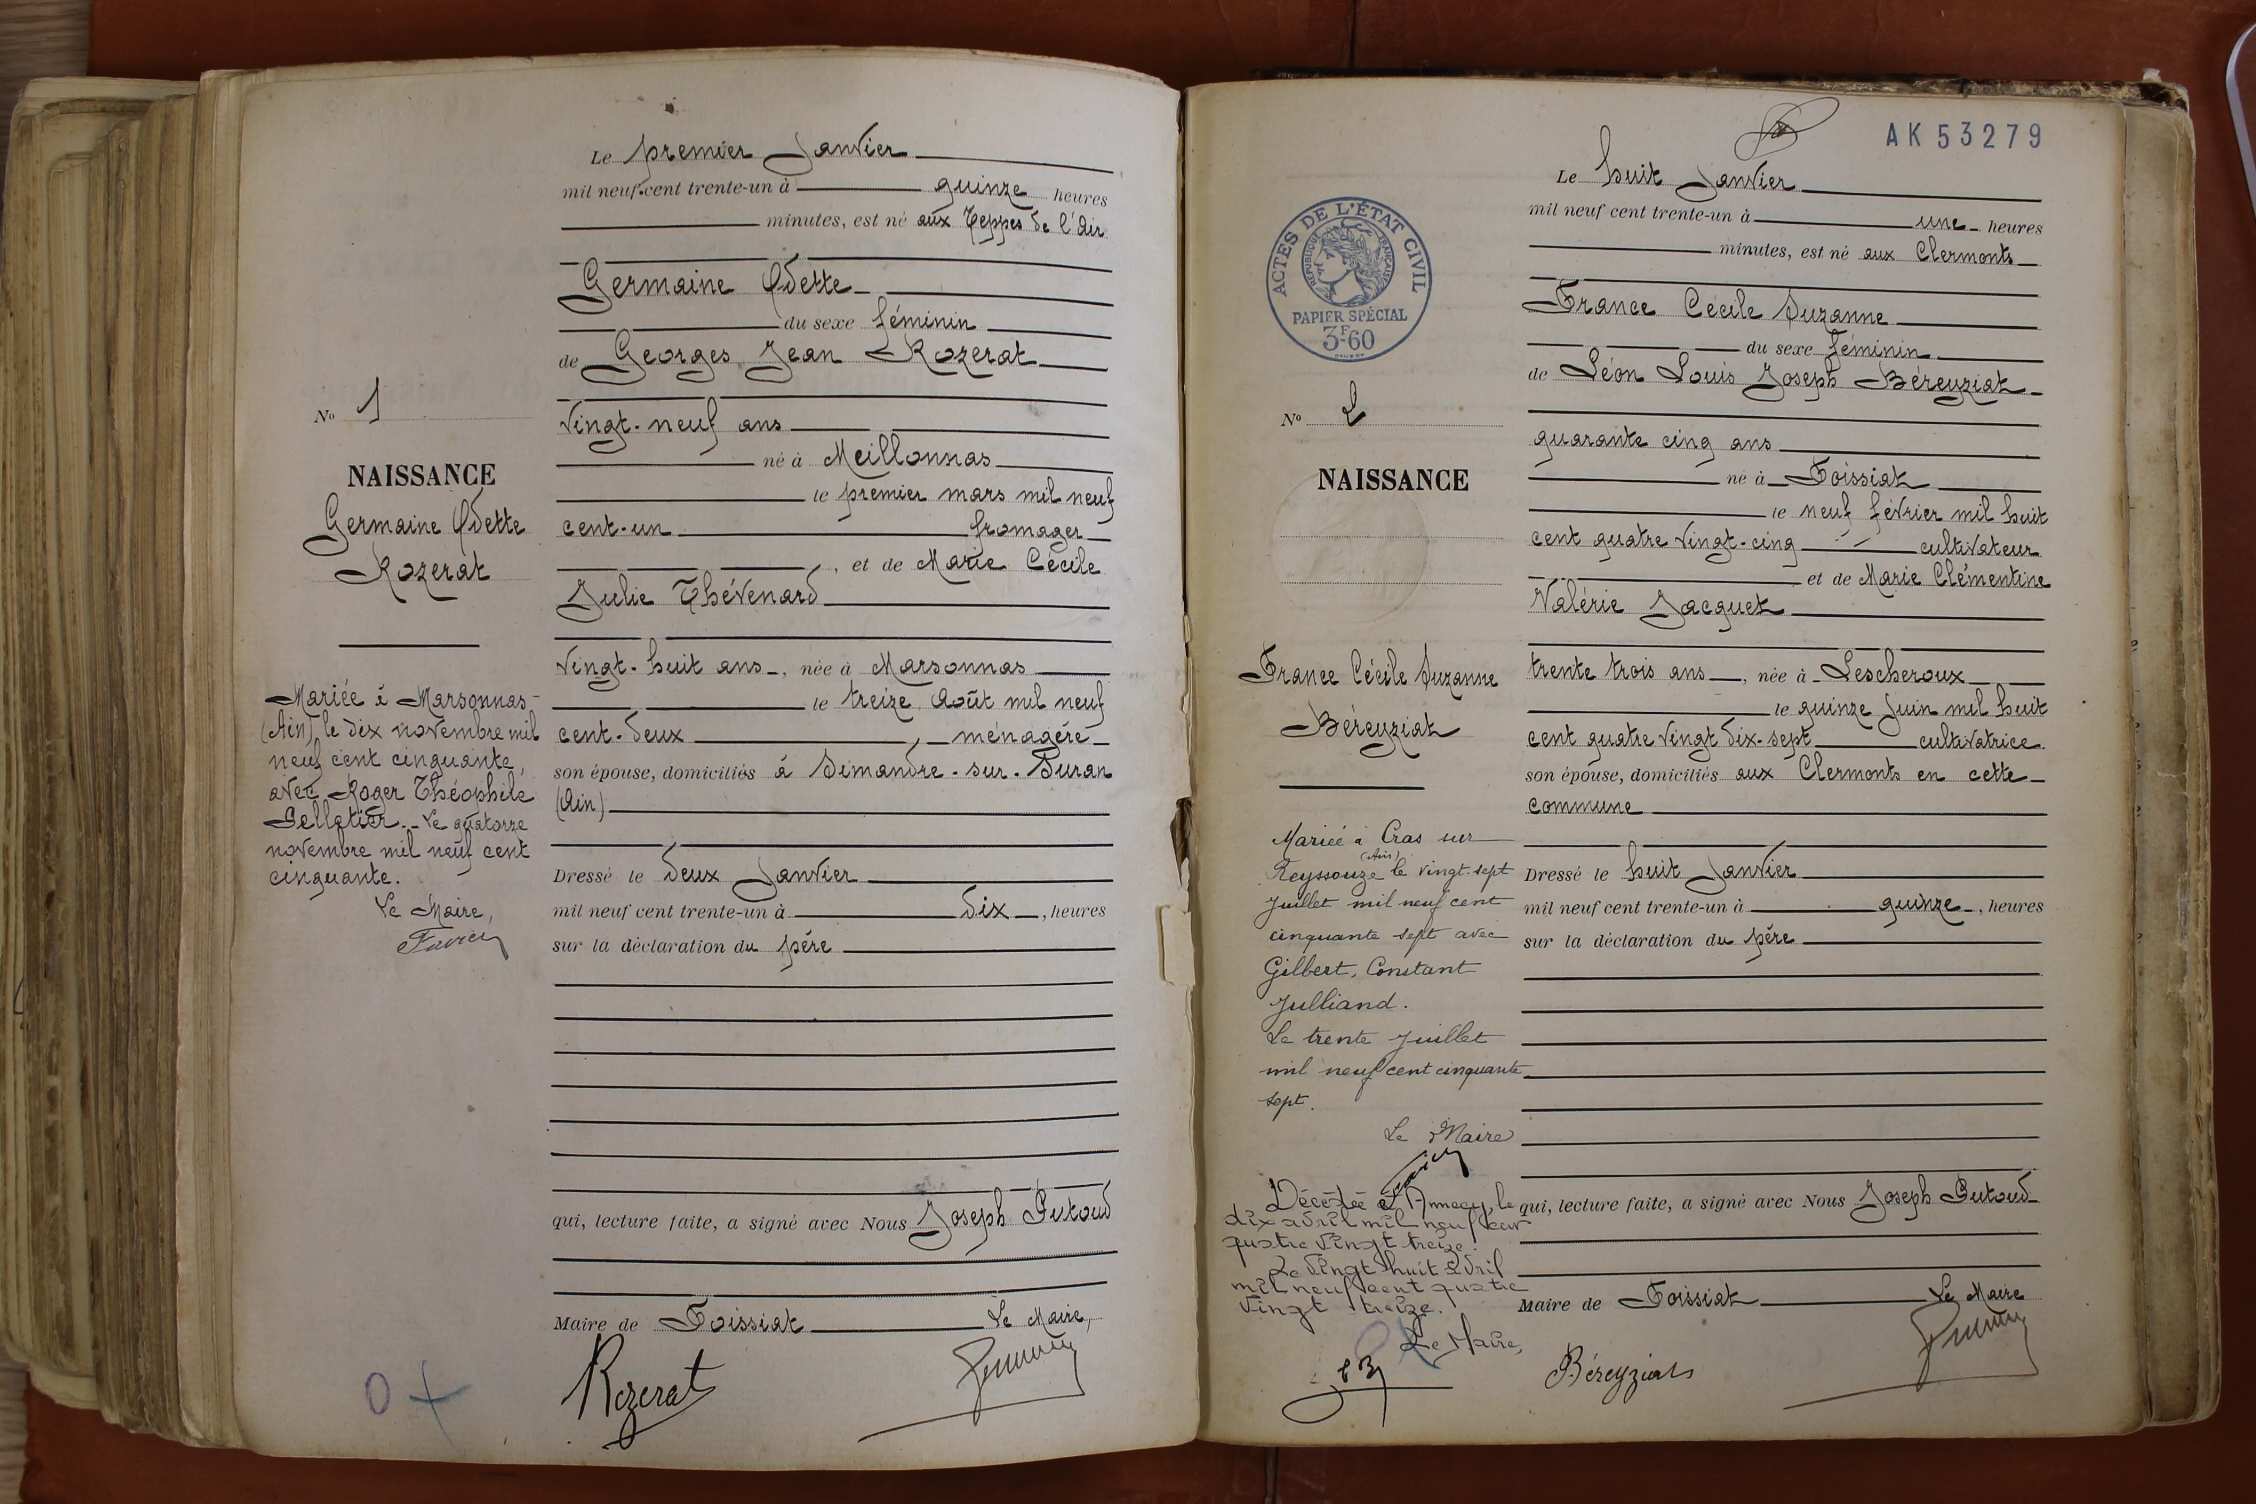 Le premier Janvier
mil neuf cent trente-un à quinze heures
minutes, est né aux Teppes de l'Air
Germaine Odette
du sexe féminin
de Georges Jean Rozerat
Vingt-neuf ans
né à Meillonnas
le premier mars mil neuf
cent-un fromager
, et de Marie Cécile
Julie Thévenard
Vingt-huit ans, née à Marsonnas
le treize Août mil neuf
cent-deux, ménagère
son épouse, domiciliés à Simandre-sur-Suran
(Ain)
Dressé le deux Janvier
mil neuf cent trente-un à dix, heures
sur la déclaration du père
qui, lecture faite, a signé avec Nous Joseph Putoud
Maire de Foissiat Le Maire,
Rozerat
No 1
NAISSANCE
Germaine Odette
Rozerat
Mariée à Marsonnas
(Ain), le dix novembre mil
neuf cent cinquante,
avec Roger Théophile
Pelletier. Le quatorze
novembre mil neuf cent
cinquante.
Le Maire,
Favier
AK 53279
Le huit Janvier
mil neuf cent trente-un à une heures
minutes, est né aux Clermonts
France Cécile Suzanne
du sexe féminin
de Léon Louis Joseph Béreyziat
quarante cinq ans
né à Foissiat
le neuf février mil huit
cent quatre vingt-cinq cultivateur
et de Marie Clémentine
Valérie Jacquet
trente trois ans, née à Lescheroux
le quinze Juin mil huit
cent quatre vingt dix-sept cultivatrice
son épouse, domiciliés aux Clermonts en cette
commune
Dressé le huit Janvier
mil neuf cent trente-un à quinze, heures
sur la déclaration du père
qui, lecture faite, a signé avec Nous Joseph Putoud
Maire de Foissiat Le Maire
Béreyziat
ACTES DE L'ÉTAT CIVIL
RÉPUBLIQUE FRANÇAISE
PAPIER SPÉCIAL
3F60
No 2
NAISSANCE
France Cécile Suzanne
Béreyziat
Mariée à Cras sur
(Ain)
Reyssouze le vingt-sept
Juillet mil neuf cent
cinquante sept avec
Gilbert, Constant
Julliand.
Le trente Juillet
mil neuf cent cinquante
sept.
Le Maire
Favier
Décédée à Annecy, le
dix avril mil neuf cent
quatre vingt treize.
Le vingt huit avril
mil neuf cent quatre
vingt treize.
Le Maire,